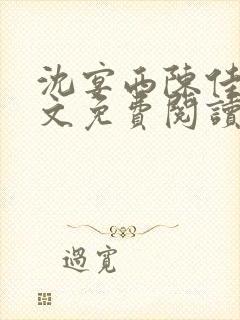 沈宴西陳佳
文免費閱讀
過寬